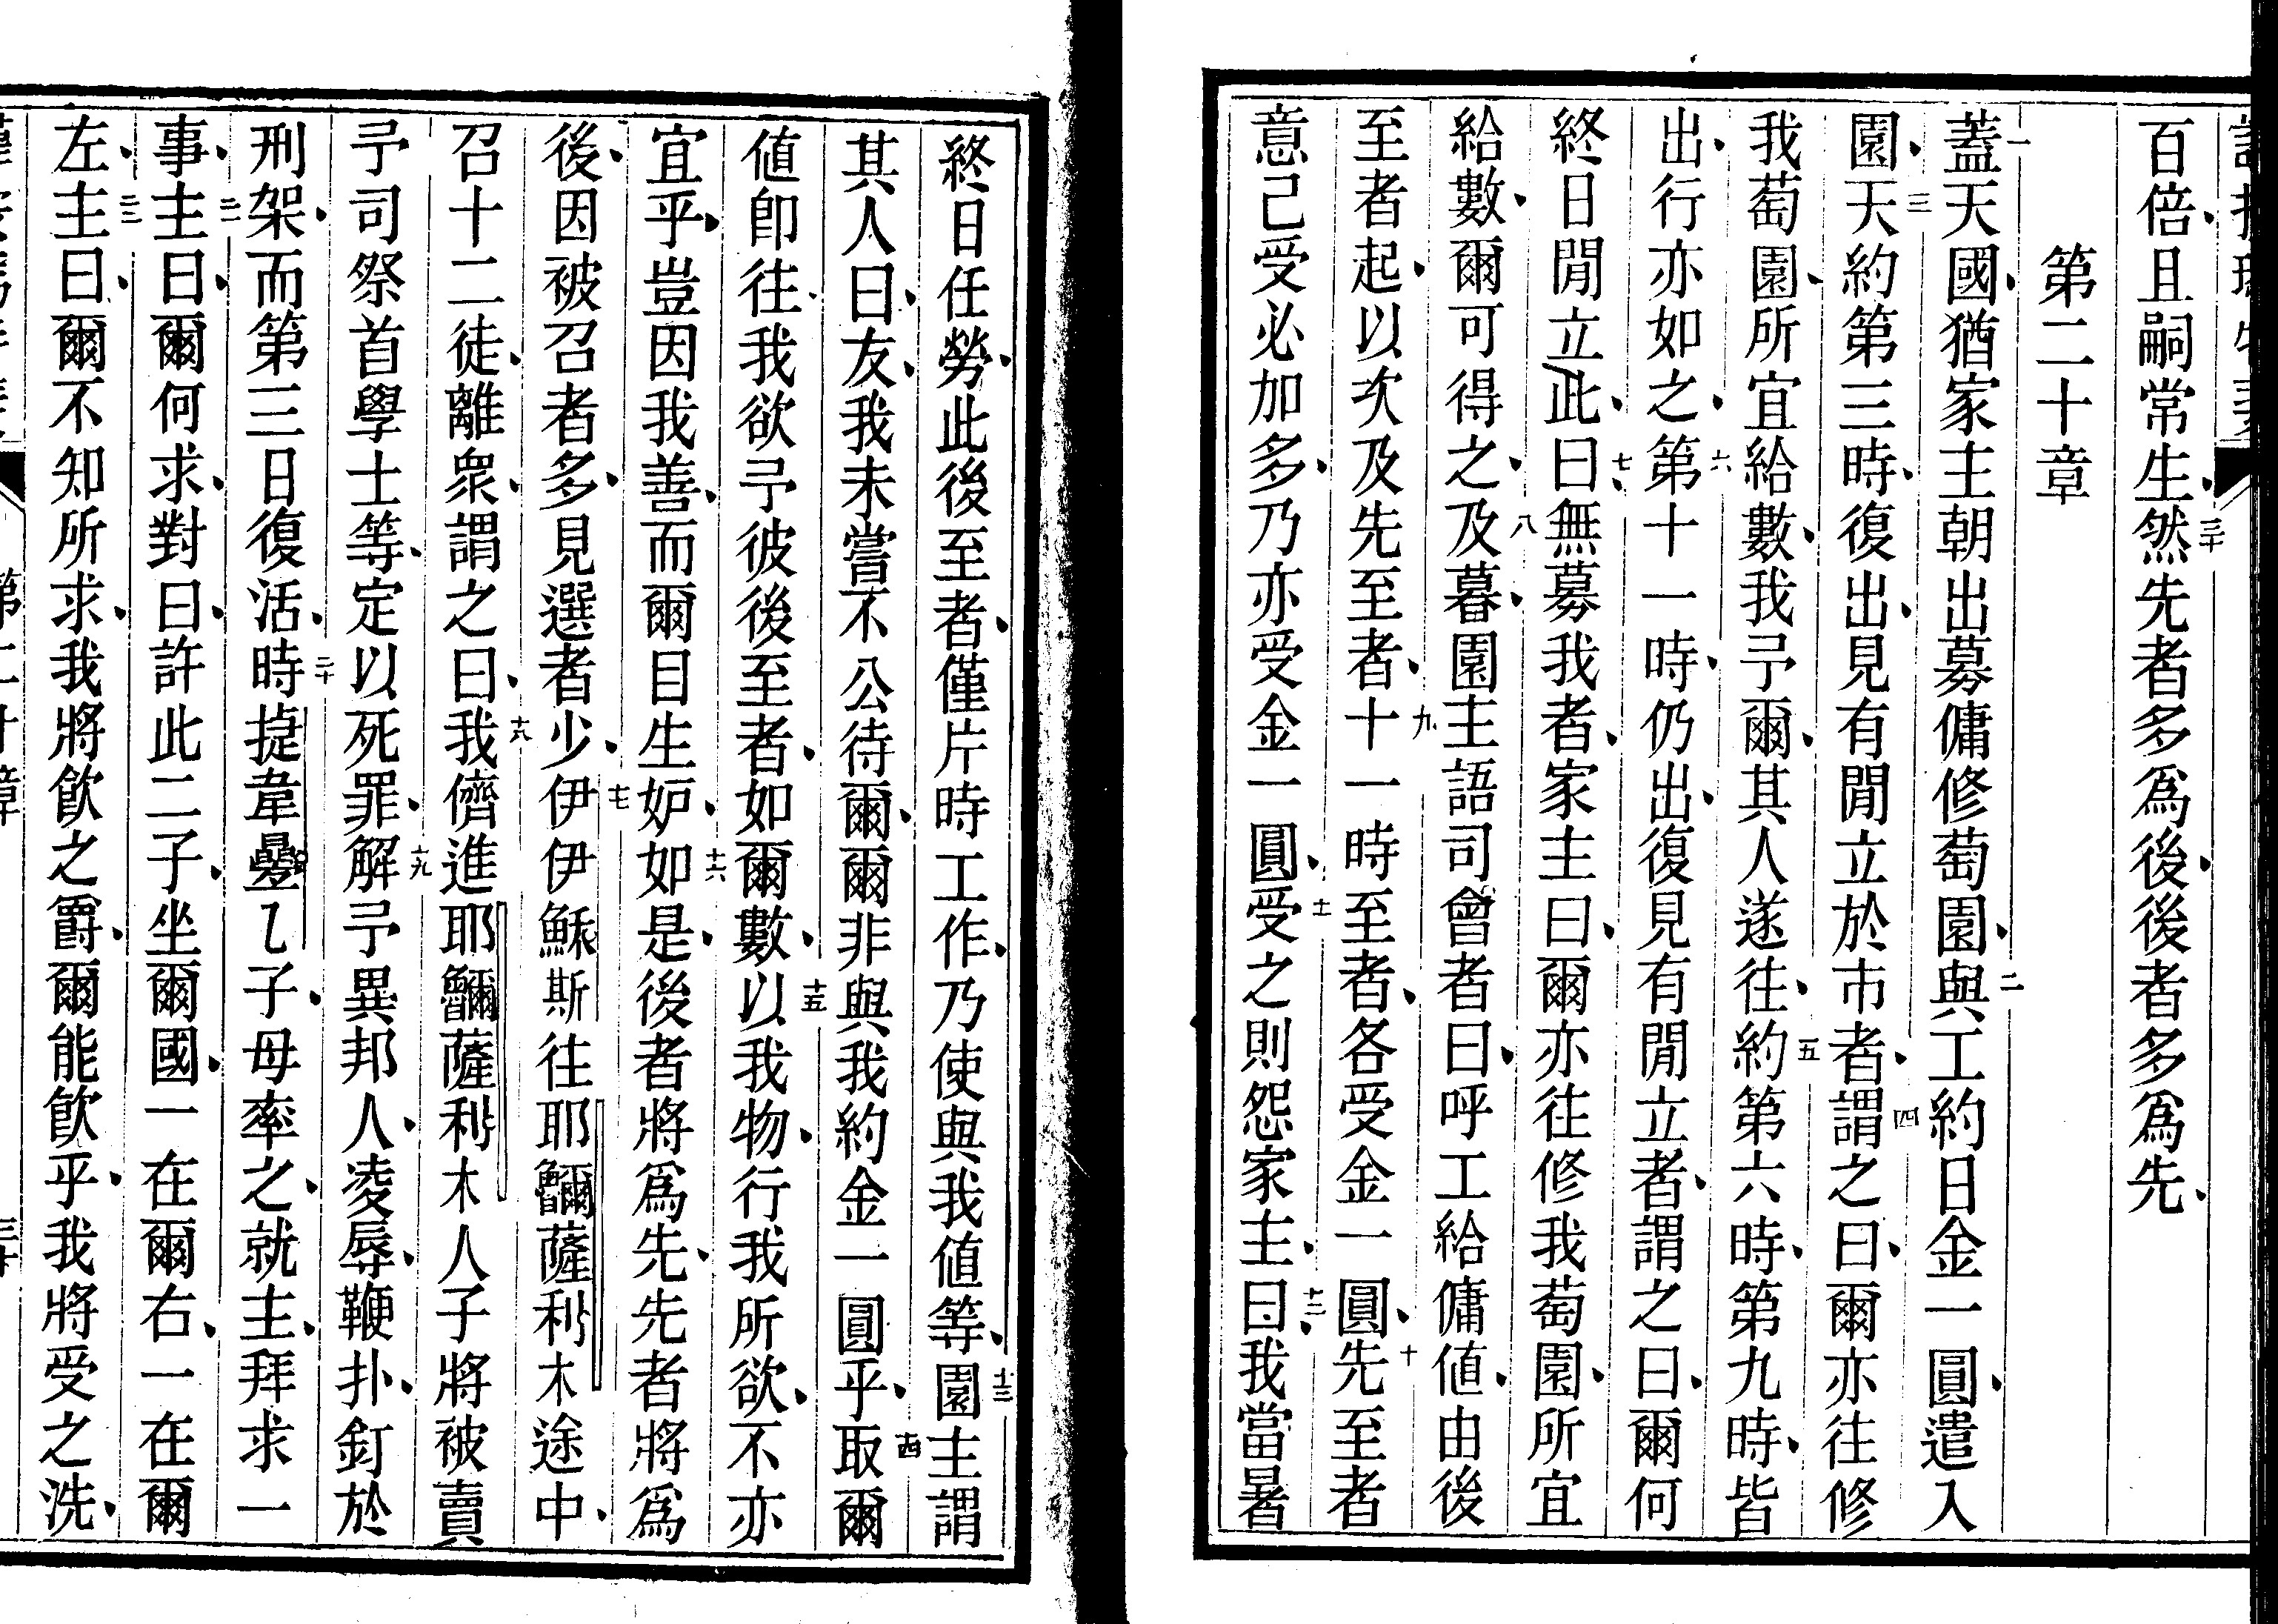 百倍、且嗣常生、三十然先者多為後、後者多為先、
第二十章
一蓋天國、猶家主朝出募傭修萄園、二與工約日金一圓、遣入
園、三天約第三時、復出、見有閒立於市者、四謂之曰、爾亦往修
我萄園、所宜給數、我予爾、其人遂往、五約第六時、第九時、皆
出、行亦如之、六第十一時、仍出、復見有閒立者、謂之曰、爾何
終日閒立此、七曰、無募我者、家主曰、爾亦往修我萄園、所宜
給數、爾可得之、八及暮、園主語司會者曰、呼工給傭值、由後
至者起、以次及先至者、九十一時至者、各受金一圓、十先至者
意己受必加多、乃亦受金一圓、十一受之則怨家主、十二曰、我當暑
終日任勞、此後至者、僅片時工作、乃使與我值等、十三園主謂
其人曰、友、我未嘗不公待爾、爾非與我約金一圓乎、十四取爾
值卽往、我欲予彼後至者、如爾數、十五以我物、行我所欲、不亦
宜乎、豈因我善、而爾目生妒、十六如是、後者將為先、先者將為
後、因被召者多、見選者少、十七伊伊穌斯往耶穪薩利木途中、
召十二徒、離眾、謂之曰、十八我儕進耶穪薩利木人子將被賣
予司祭首學士等、定以死罪、十九解予異邦人、凌辱、鞭扑、釘於
刑架、而第三日復活、二十時㨗韋曐乙子、母率之、就主、拜求一
事、二一主曰、爾何求、對曰、許此二子、坐爾國、一在爾右、一在爾
左、二二主曰、爾不知所求、我將飲之爵、爾能飲乎、我將受之洗、